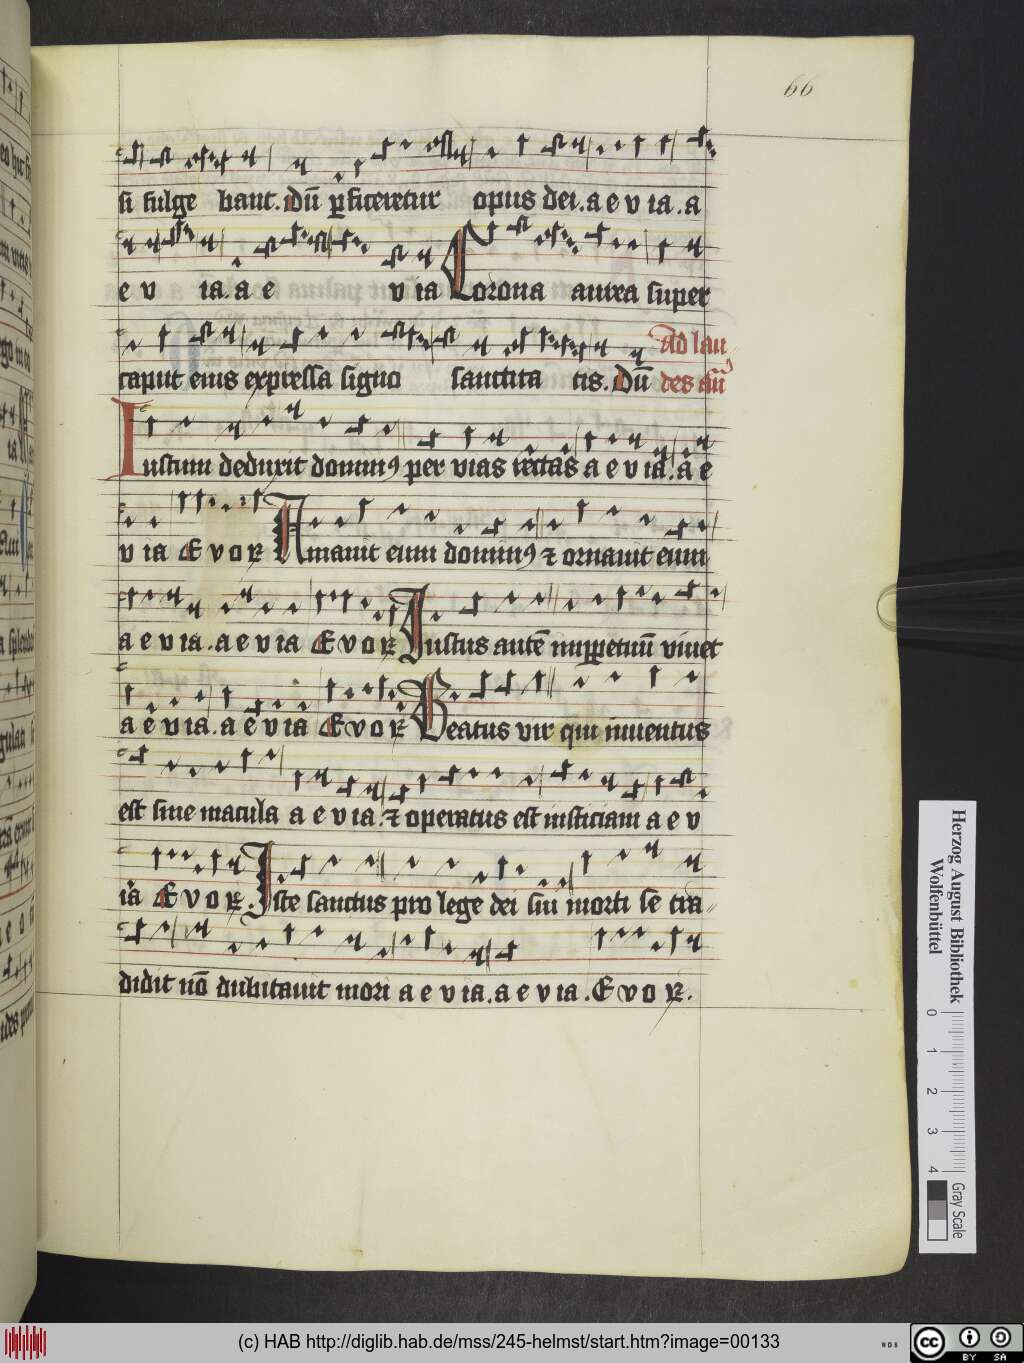 66
si fulge bant. Dū ꝑficeretur opus dei. a e v ia. a
e v ia. a e v ia Corona aurea super
Ad lau
caput eius expressa signo sanctita tis. Dū des añ
Iustum deduxit dominꝰ per vias rectas a e v ia. a e
v ia Evoꝶ Amauit eum dominꝰ ⁊ ornauit eum
a e v ia. a e v ia Evoꝶ Iustus autē inꝑpetuū viuet
a e v ia. a e v ia Evoꝶ Beatus vir qui inuentus
est sine macula a e v ia. ⁊ operatus est iusticiam a e v
ia Evoꝶ. Iste sanctus pro lege dei sui morti se tra
didit nō dubitauit mori a e v ia. a e v ia. Evoꝶ.
Herzog August Bibliothek
Wolfenbüttel
0 1 2 3 4
Gray Scale
(c) HAB http://diglib.hab.de/mss/245-helmst/start.htm?image=00133
WDB
cc BY SA